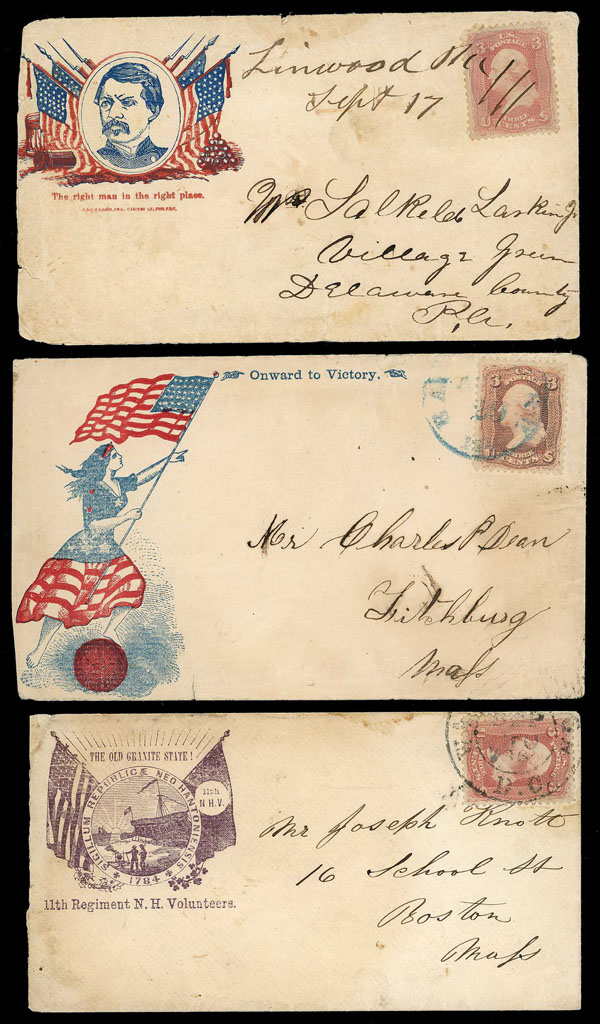 Linwood
Sept 17
U.S. POSTAGE
3 3
THREE CENTS
U S
The right man in the right place.
Salkeld Larkin Jr
Village Green
Delaware County
Pa.
Onward to Victory.
U.S. POSTAGE
3 3
THREE CENTS
U S
Mr Charles P. Dean
Fitchburg
Mass
THE OLD GRANITE STATE!
SIGILLUM REIPUBLICÆ NEO HANTONIENSIS
1784
11th
N.H.V.
11th Regiment N. H. Volunteers.
D.C.
3
Mr Joseph Knott
16 School St
Boston
Mass